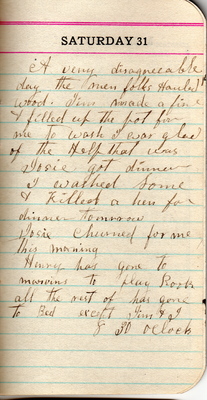 SATURDAY 31
A very disagreeable
day the men folks Hauled
wood. Jim made a fire
& filled up the pot for
me to wash I was glad
of the Help that was
Josie got dinner
I washed some
& Killed a hen for
dinner tomrrow
Josie churned for me
this morning
Henry has gone to
marvins to play Rook
all the rest of has gone
to Bed except Jim & I
8 30 oclock